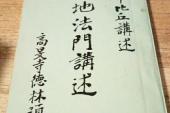 比丘講述
地法門講述
高旻寺德林